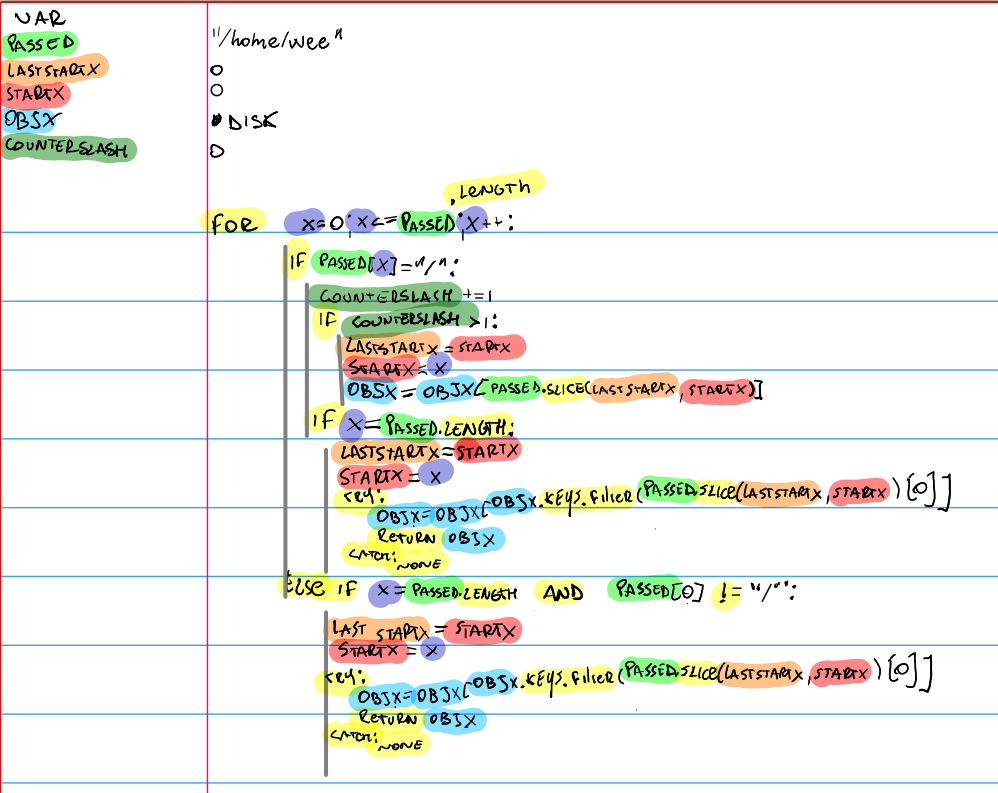 VAR
PASSED "/home/wee"
LASTSTARTX 0
STARTX 0
OBJX DISK
COUNTERSLASH 0
.LENGTH
FOR X=0; X<=PASSED; X++:
IF PASSED[X]="/":
COUNTERSLASH +=1
IF COUNTERSLASH >1:
LASTSTARTX = STARTX
STARTX = X
OBJX = OBJX[PASSED.SLICE(LASTSTARTX, STARTX)]
IF X=PASSED.LENGTH:
LASTSTARTX=STARTX
STARTX = X
TRY:
OBJX=OBJX[OBJX.KEYS.FILTER(PASSED.SLICE(LASTSTARTX, STARTX)[0]]
RETURN OBJX
CATCH:
NONE
ELSE IF X=PASSED.LENGTH AND PASSED[0] != "/":
LAST STARTX = STARTX
STARTX = X
TRY:
OBJX=OBJX[OBJX.KEYS.FILTER(PASSED.SLICE(LASTSTARTX, STARTX)[0]]
RETURN OBJX
CATCH:
NONE